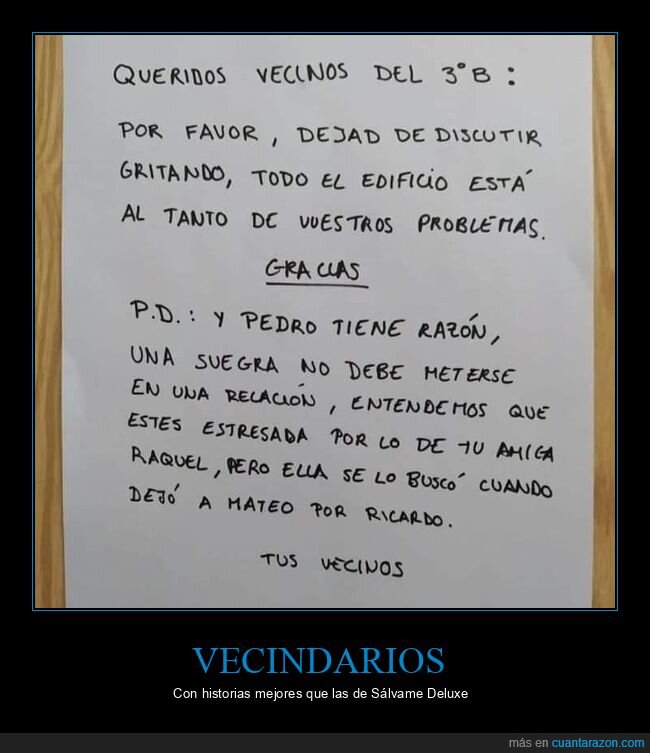 QUERIDOS VECINOS DEL 3°B:
POR FAVOR, DEJAD DE DISCUTIR
GRITANDO, TODO EL EDIFICIO ESTÁ
AL TANTO DE VUESTROS PROBLEMAS.
GRACIAS
P.D.: Y PEDRO TIENE RAZÓN,
UNA SUEGRA NO DEBE METERSE
EN UNA RELACIÓN, ENTENDEMOS QUE
ESTES ESTRESADA POR LO DE TU AMIGA
RAQUEL, PERO ELLA SE LO BUSCÓ CUANDO
DEJÓ A MATEO POR RICARDO.
TUS VECINOS
VECINDARIOS
Con historias mejores que las de Sálvame Deluxe
más en cuantarazon.com